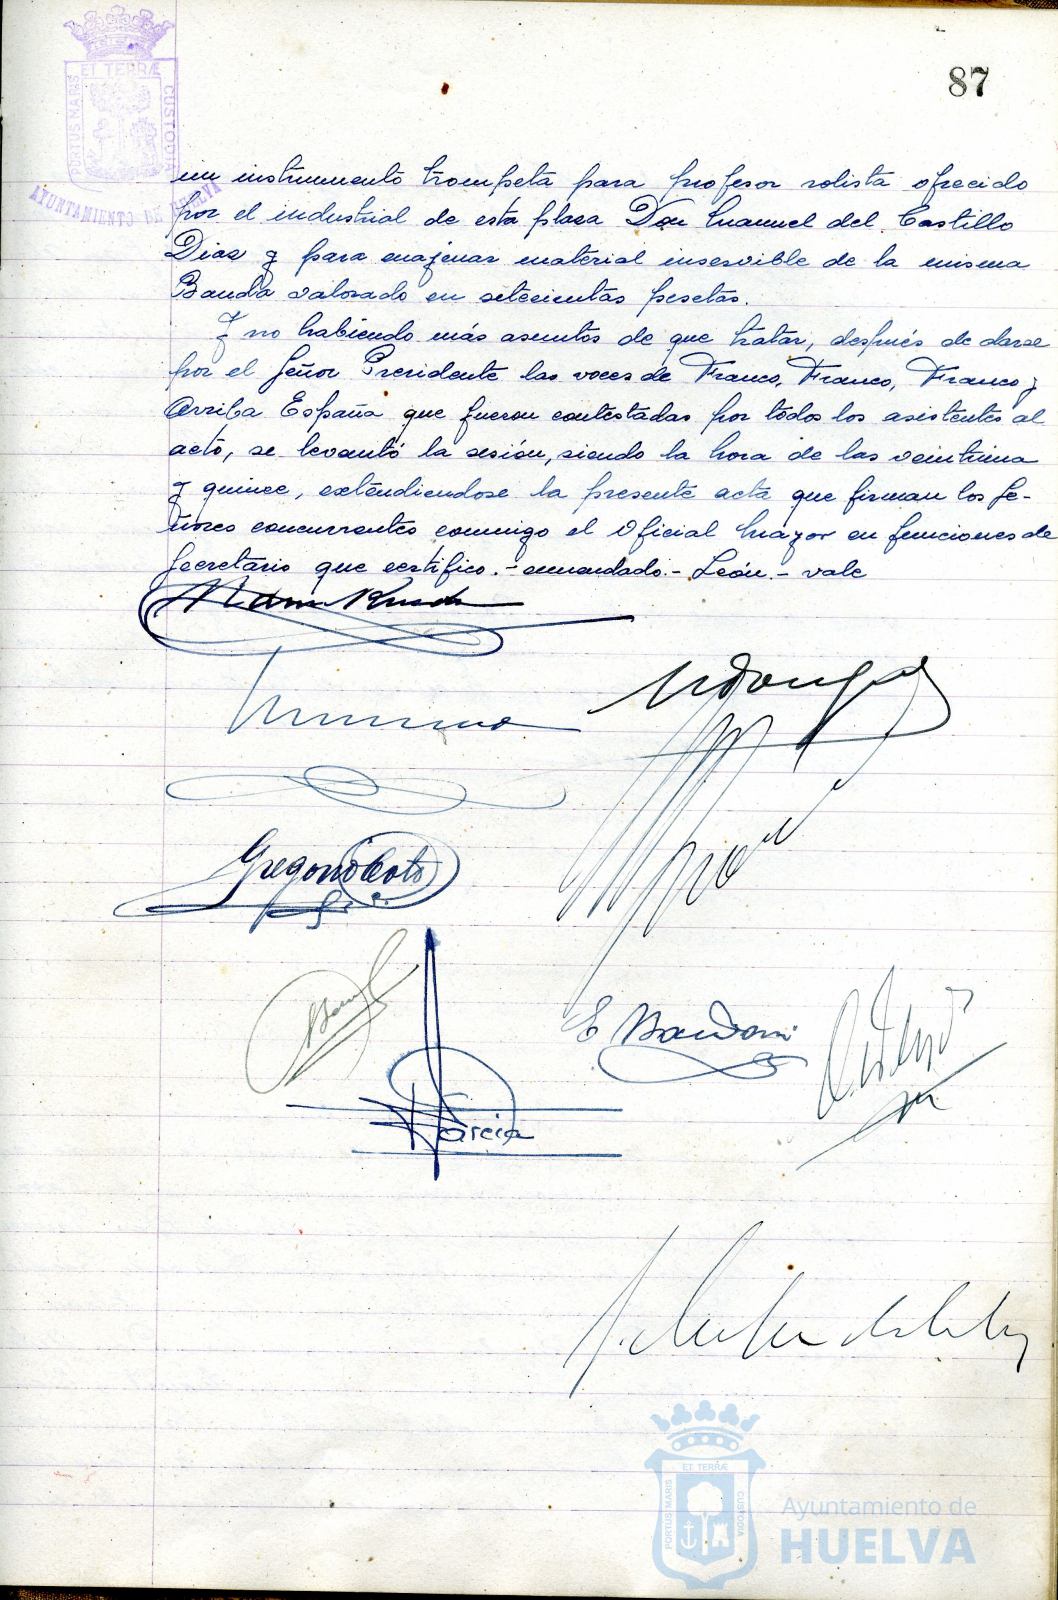 87
ET TERRÆ
PORTUS MARIS
CUSTODIA
AYUNTAMIENTO DE HUELVA
un instrumento trompeta para profesor solista ofrecido
por el industrial de esta plaza Don Manuel del Castillo
Diaz y para enajenar material inservible de la misma
Banda valorado en setecientas pesetas.
Y no habiendo más asuntos de que tratar, después de darse
por el Señor Presidente las voces de Franco, Franco, Franco y
Arriba España que fueron contestadas por todos los asistentes al
acto, se levantó la sesión, siendo la hora de las veintiuna
y quince, extendiendose la presente acta que firman los Se-
ñores concurrentes conmigo el Oficial Mayor en funciones de
Secretario que certifico.- enmendado.- León.- vale
Gregorio Coto
Garcia
ET TERRÆ
PORTUS MARIS
CUSTODIA
Ayuntamiento de
HUELVA